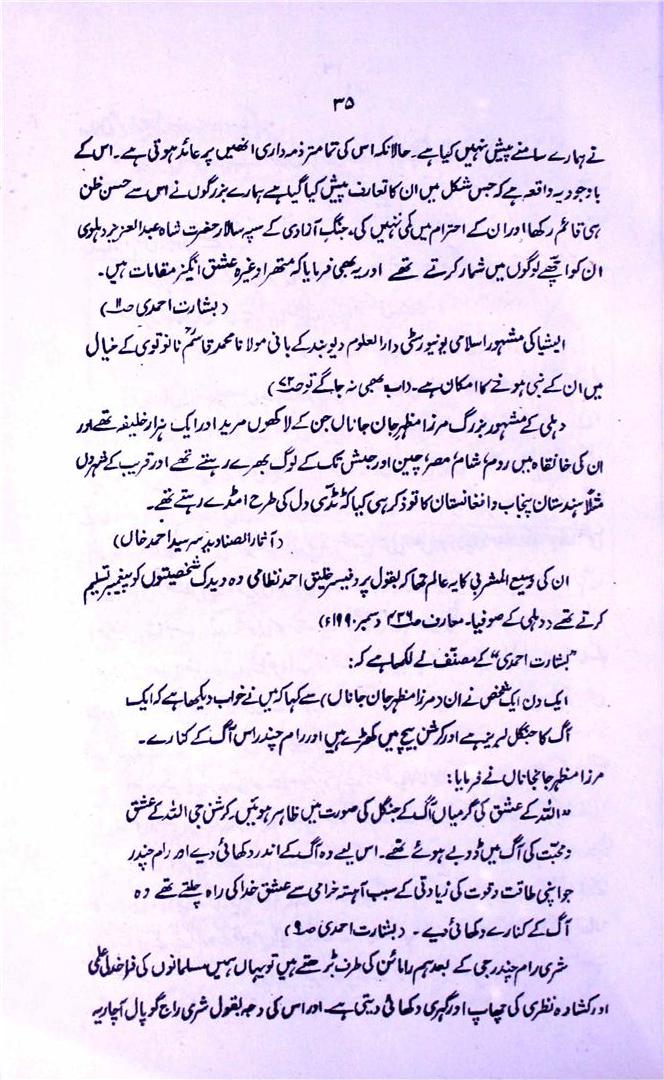 ۳۵
نے ہمارے سامنے پیش نہیں کیا ہے۔ حالانکہ اس کی تمامتر ذمہ داری انھیں پر عائد ہوتی ہے۔ اس کے
باوجود یہ واقعہ ہے کہ جس شکل میں ان کا تعارف پیش کیا گیا ہے ہمارے بزرگوں نے اس سے حسن ظن
ہی قائم رکھا اور ان کے احترام میں کمی نہیں کی۔ جنگ آزادی کے سپہ سالار حضرت شاہ عبدالعزیز دہلوی
ان کو اچھے لوگوں میں شمار کرتے تھے اور یہ بھی فرمایا کہ متھرا وغیرہ عشق انگیز مقامات ہیں۔
(بشارت احمدی ص۱۱)
ایشیا کی مشہور اسلامی یونیورسٹی دارالعلوم دیوبند کے بانی مولانا محمد قاسمؒ نانوتوی کے خیال
میں ان کے نبی ہونے کا امکان ہے۔ (اب بھی نہ جاگے تو ص۷۲)
دہلی کے مشہور بزرگ مرزا مظہر جان جاناں جن کے لاکھوں مرید اور ایک ہزار خلیفہ تھے اور
ان کی خانقاہ میں روم، شام، مصر، چین اور حبش تک کے لوگ بھرے رہتے تھے اور قریب کے شہروں
مثلاً ہندستان پنجاب و افغانستان کا تو ذکر ہی کیا کہ ٹڈی دل کی طرح امڈے رہتے تھے۔
(آثار الصنادید سرسید احمد خاں)
ان کی وسیع المشربی کا یہ عالم تھا کہ بقول پروفیسر خلیق احمد نظامی وہ ویدک شخصیتوں کو پیغمبر تسلیم
کرتے تھے (دہلی کے صوفیا۔ معارف ص۴۳۶ دسمبر ۱۹۹۰ء)
"بشارت احمدی" کے مصنف نے لکھا ہے کہ:
ایک دن ایک شخص نے ان (مرزا مظہر جان جاناں) سے کہا کہ میں نے خواب دیکھا ہے کہ ایک
آگ کا جنگل لبریز ہے اور کرشن بیچ میں کھڑے ہیں اور رام چندر اس آگ کے کنارے۔
مرزا مظہر جانجاناں نے فرمایا:
"اللہ کے عشق کی گرمیاں آگ کے جنگل کی صورت میں ظاہر ہوئیں۔ کرشن جی اللہ کے عشق
و محبت کی آگ میں ڈوبے ہوئے تھے۔ اس لیے وہ آگ کے اندر دکھائی دیے اور رام چندر
جو اپنی طاقت و قوت کی زیادتی کے سبب آہستہ خرامی سے عشق خدا کی راہ چلتے تھے وہ
آگ کے کنارے دکھائی دیے۔ (بشارت احمدی ص۹)
شری رام چندر جی کے بعد ہم رامائن کی طرف بڑھتے ہیں تو یہاں ہمیں مسلمانوں کی فراخدلی علمی
اور کشادہ نظری کی چھاپ اور گہری دکھائی دیتی ہے۔ اور اس کی وجہ بقول شری راج گوپال آچاریہ